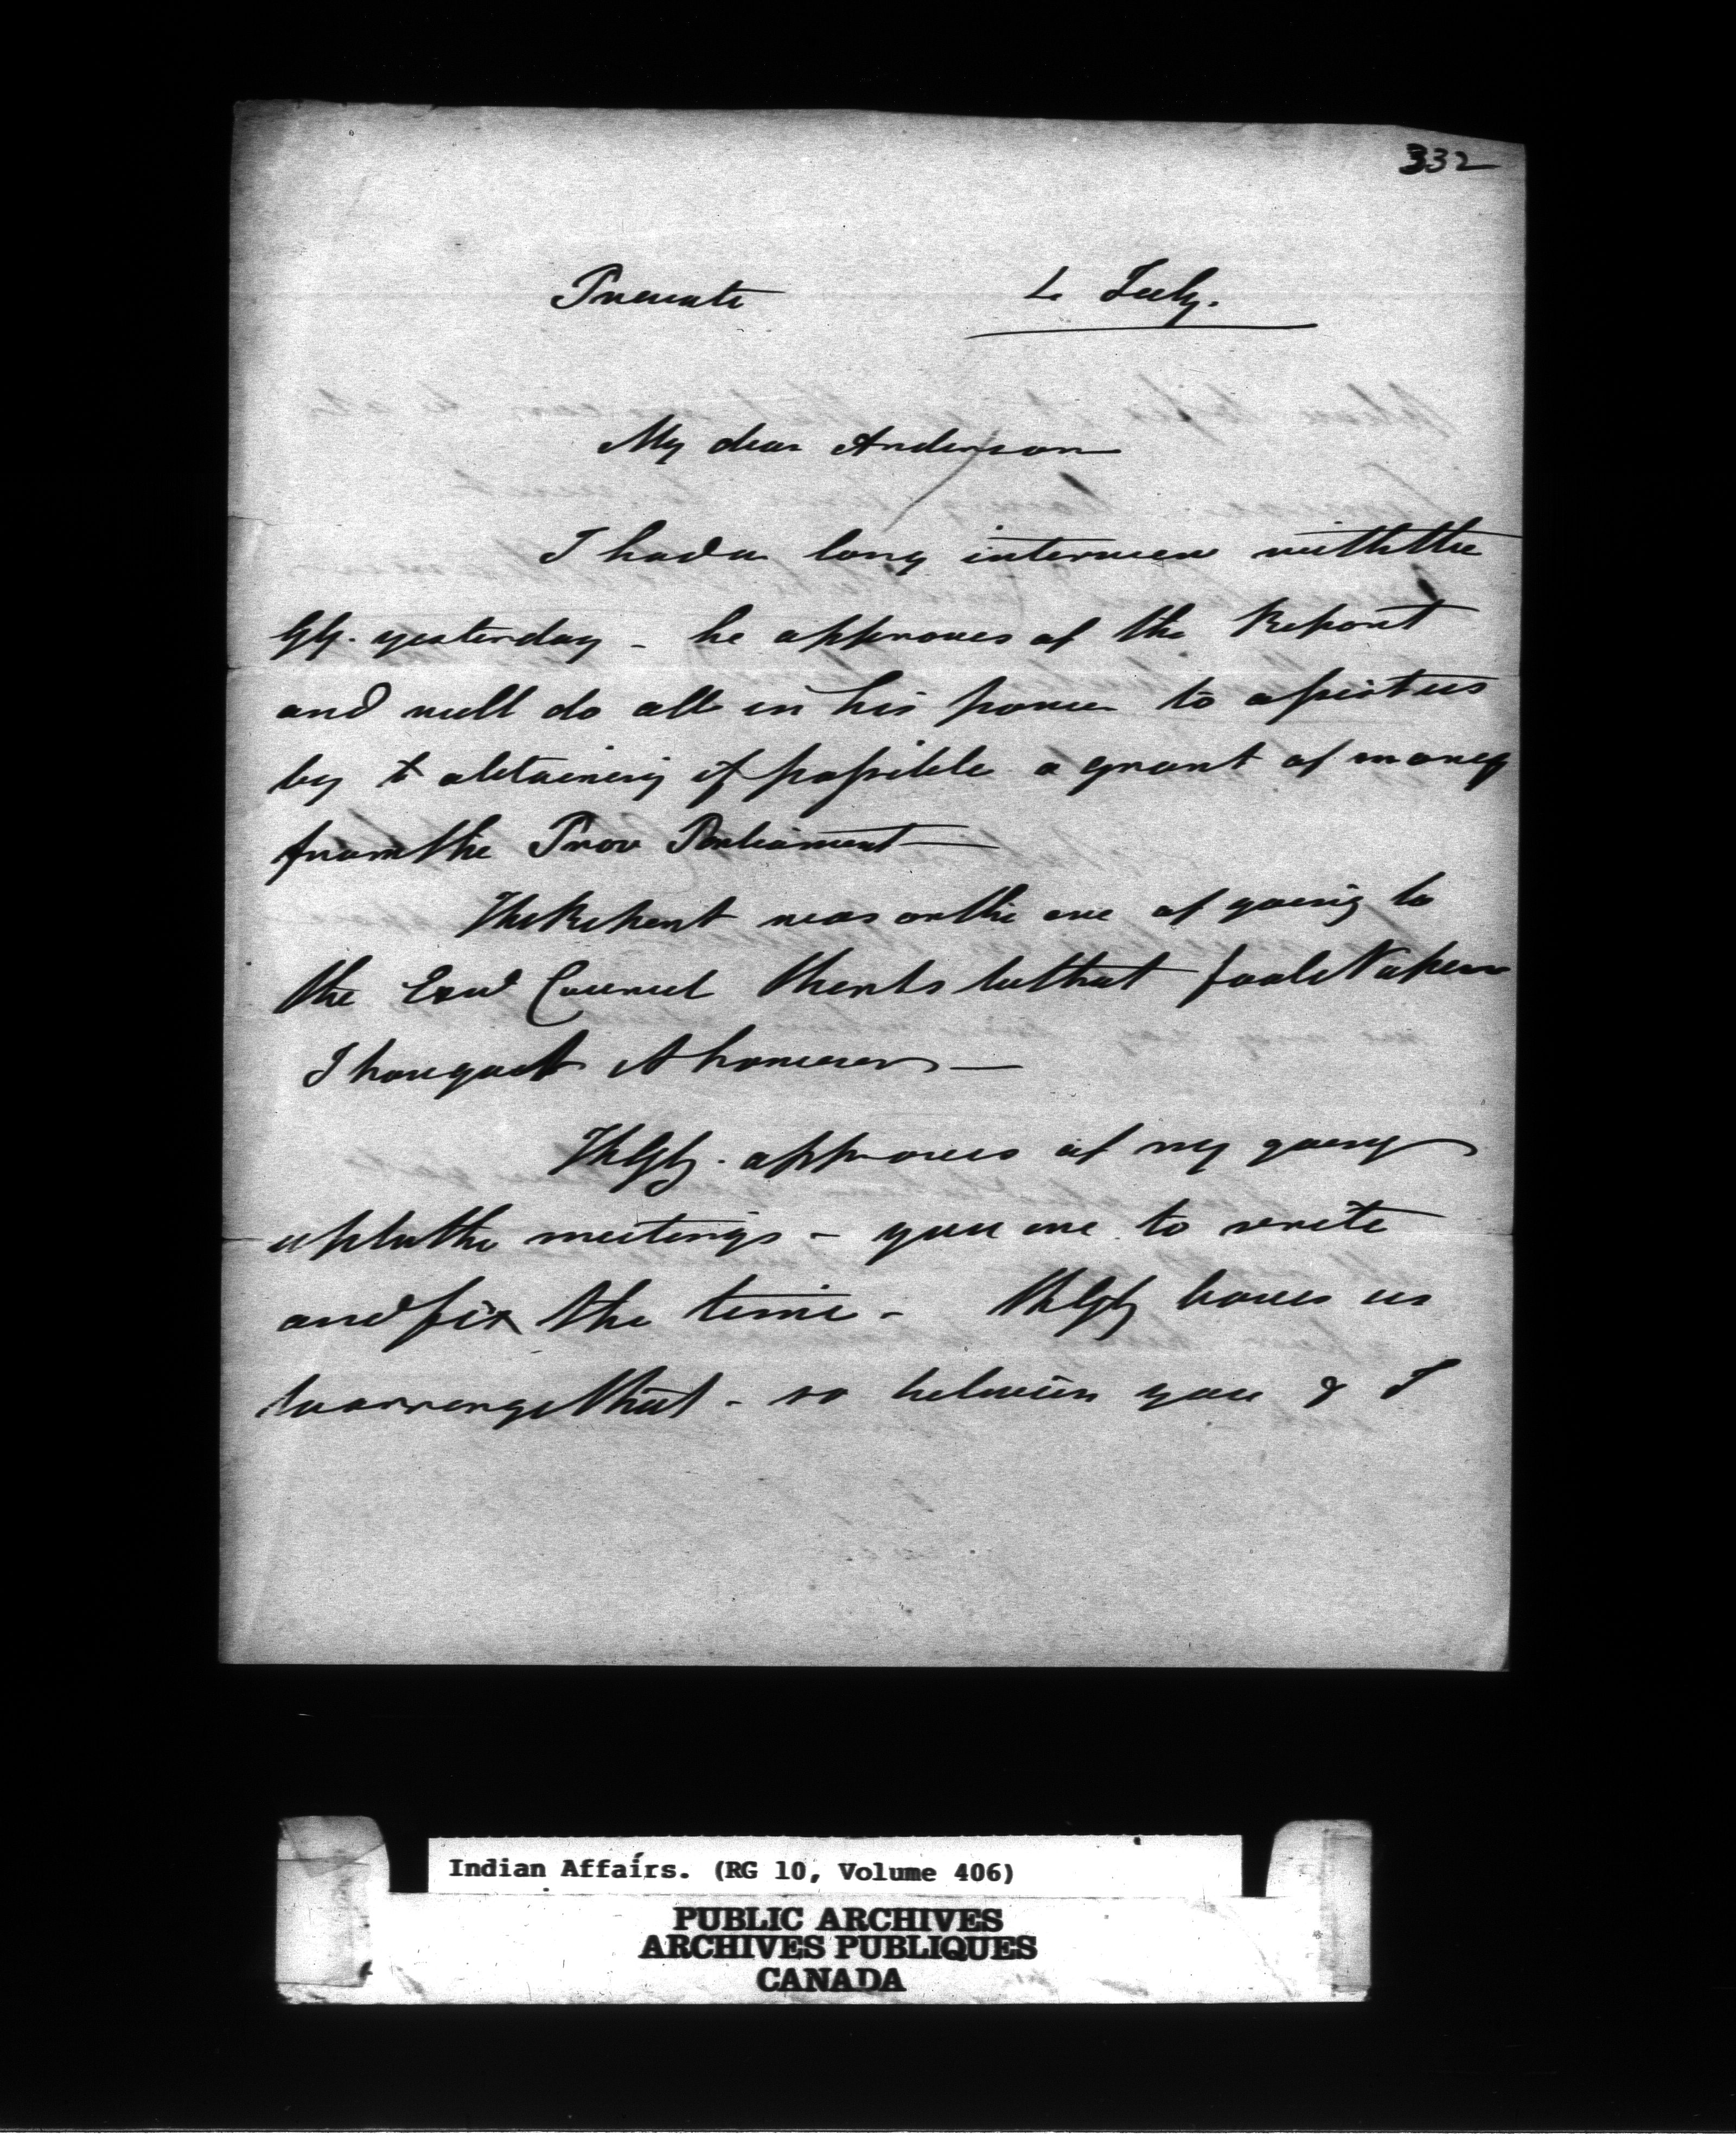 332
Private 4 July.
My dear Anderson
I had a long interview with the
GG. yesterday - he approves of the Report
and will do all in his power to assist us
by t obtaining if possible a grant of money
from the Prov Parliament
The Report was on the eve of going to
the Exve Council thanks to that fool Napier
I have got it however -
The GG. approves of my going
up to the meetings - you are to write
and fix the time - The GG leaves us
to arrange that - so between you & I
Indian Affairs. (RG 10, Volume 406)
PUBLIC ARCHIVES
ARCHIVES PUBLIQUES
CANADA